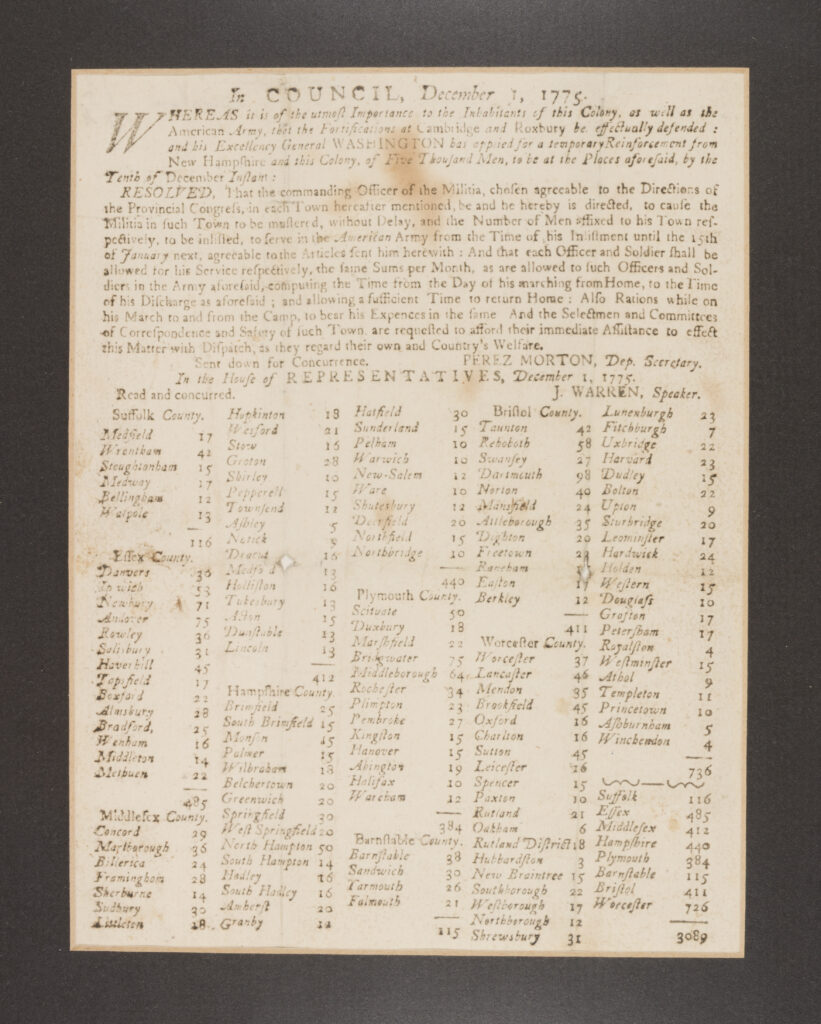 In COUNCIL, December 1, 1775.
WHEREAS it is of the utmoſt Importance to the Inhabitants of this Colony, as well as the
American Army, that the Fortifications at Cambridge and Roxbury be effectually defended :
and his Excellency General WASHINGTON has applied for a temporary Reinforcement from
New Hampſhire and this Colony, of Five Thouſand Men, to be at the Places aforeſaid, by the
Tenth of December Inſtant :
RESOLVED, That the commanding Officer of the Militia, choſen agreeable to the Directions of
the Provincial Congreſs, in each Town hereafter mentioned, be and he hereby is directed, to cauſe the
Militia in ſuch Town to be muſtered, without Delay, and the Number of Men affixed to his Town reſ-
pectively, to be inliſted, to ſerve in the American Army from the Time of his Inliſtment until the 15th
of January next, agreeable to the Articles ſent him herewith : And that each Officer and Soldier ſhall be
allowed for his Service reſpectively, the ſame Sums per Month, as are allowed to ſuch Officers and Sol-
diers in the Army aforeſaid, computing the Time from the Day of his marching from Home, to the Time
of his Diſcharge as aforeſaid ; and allowing a ſufficient Time to return Home : Alſo Rations while on
his March to and from the Camp, to bear his Expences in the ſame And the Selectmen and Committees
of Correſpondence and Safety of ſuch Town are requeſted to afford their immediate Aſſiſtance to effect
this Matter with Diſpatch, as they regard their own and Country's Welfare.
Sent down for Concurrence. PEREZ MORTON, Dep. Secretary.
In the Houſe of REPRESENTATIVES, December 1, 1775.
Read and concurred. J. WARREN, Speaker.
Suffolk County.
Medfield 17
Wrentham 42
Stoughtonham 15
Medway 17
Bellingham 12
Walpole 13
116
Eſſex County.
Danvers 36
Ipſwich 53
Newbury 71
Andover 75
Rowley 36
Saliſbury 31
Haverhill 45
Topsfield 17
Boxford 22
Almſbury 28
Bradford, 25
Wenham 16
Middleton 14
Methuen 22
485
Middleſex County.
Concord 29
Marlborough 36
Bilerica 24
Framingham 28
Sherburne 14
Sudbury 30
Littleton 18
Hopkinton 18
Weſford 21
Stow 16
Groton 28
Shirley 10
Pepperell 15
Townſend 12
Aſhby 5
Natick 9
Dracut 16
Medford 13
Holliſton 16
Tukeſbury 13
Acton 15
Dunſtable 13
Lincoln 13
412
Hampſhire County.
Brimfield 25
South Brimfield 15
Monſon 15
Palmer 15
Wilbraham 18
Belchertown 20
Greenwich 20
Springfield 30
Weſt Springfield 20
North Hampton 50
South Hampton 14
Hadley 16
South Hadley 16
Amherſt 20
Granby 12
Hatfield 30
Sunderland 15
Pelham 10
Warwich 10
New-Salem 12
Ware 10
Shuteſbury 12
Deerfield 20
Northfield 15
Northbridge 10
440
Plymouth County.
Scituate 50
Duxbury 18
Marſhfield 22
Bridgwater 75
Middleborough 64
Rocheſter 34
Plimpton 23
Pembroke 27
Kingſton 15
Hanover 15
Abington 19
Halifax 10
Wareham 12
384
Barnſtable County.
Barnſtable 38
Sandwich 30
Yarmouth 26
Falmouth 21
115
Briſtol County.
Taunton 42
Rehoboth 58
Swanſey 27
Dartmouth 98
Norton 40
Mansfield 24
Attleborough 35
Dighton 20
Freetown
Raneham
Eaſton 17
Berkley 12
411
Worceſter County.
Worceſter 37
Lancaſter 46
Mendon 35
Brookfield 45
Oxford 16
Charlton 16
Sutton 45
Leiceſter 16
Spencer 15
Paxton 10
Rutland 21
Oakham 6
Rutland Diſtrict 18
Hubbardſton 3
New Braintree 15
Southborough 22
Weſtborough 17
Northborough 12
Shrewſbury 31
Lunenburgh 23
Fitchburgh 7
Uxbridge 22
Harvard 23
Dudley 15
Bolton 22
Upton 9
Sturbridge 20
Leominſter 17
Hardwick 24
Holden 12
Weſtern 15
Douglaſs 10
Grafton 17
Peterſham 17
Royalſton 4
Weſtminſter 15
Athol 9
Templeton 11
Princetown 10
Aſhburnham 5
Winchendon 4
736
Suffolk 116
Eſſex 485
Middleſex 412
Hampſhire 440
Plymouth 384
Barnſtable 115
Briſtol 411
Worceſter 726
3089